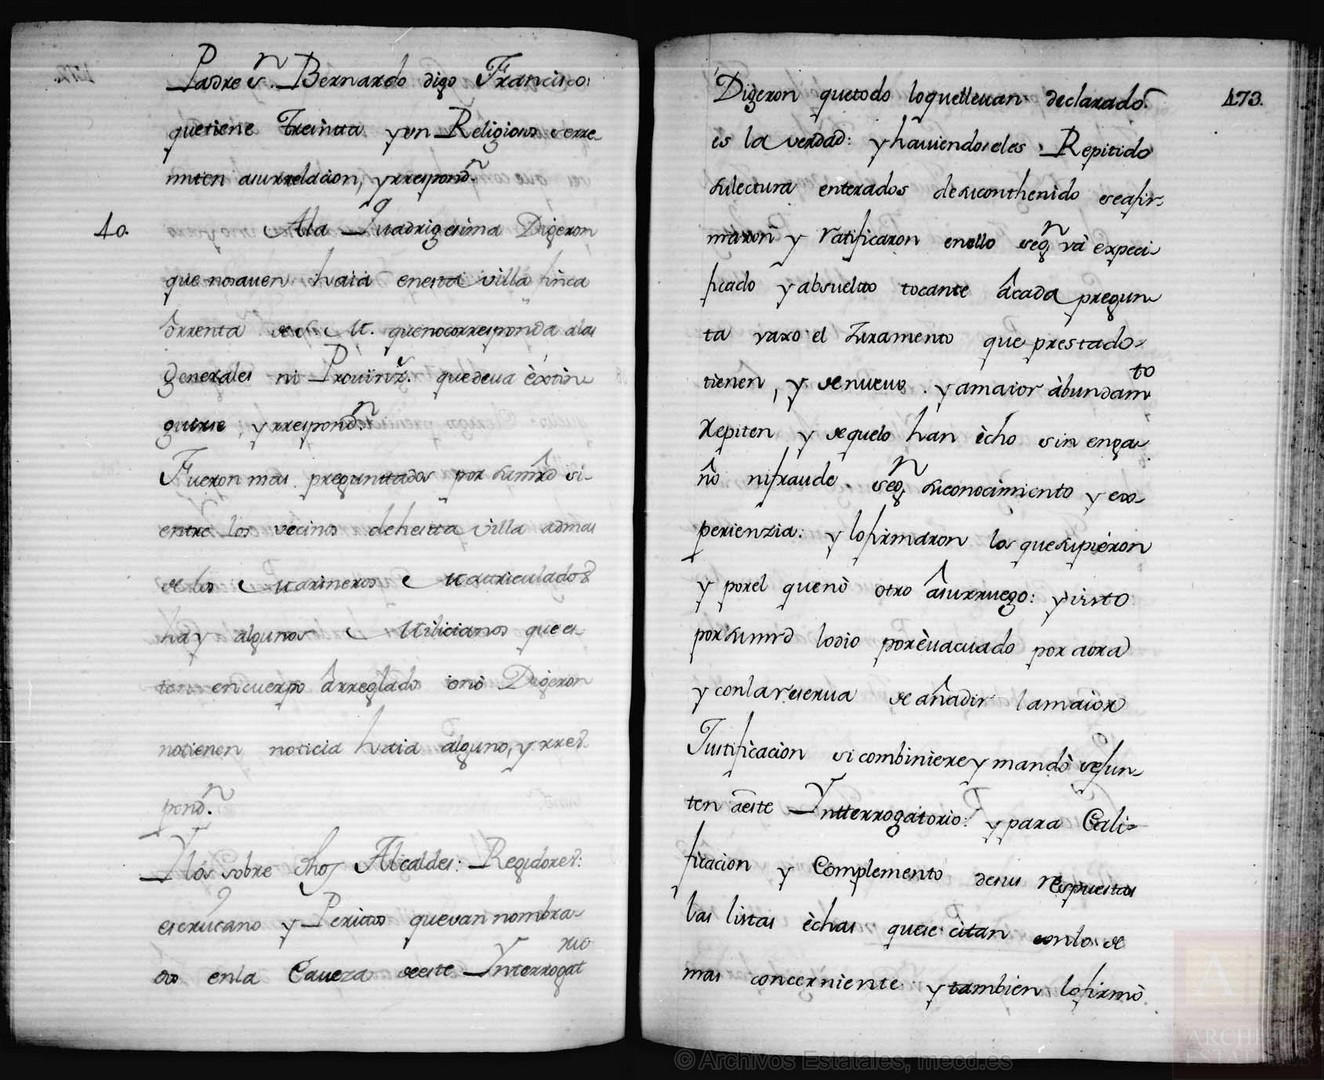 Padre Sn. Bernardo digo Francisco:
quetiene Treintta y un Religioso serre-
miten asurrelacion, yrrespondn
40. Ala Quadrigesima Digeron
que nosaven haia enesta villa finca
ôrrenta de S. M. quenocorresponda alas
Generales ni Provinz. quedeva êxtin
guirse, yrrespondn.
Fueron mas preguntados por sumrd si-
entre los vecinos dehesta villa admas
de los Marineros Matriculados
hay algunos Milicianos que es
ten encuerpo ârreglado ônò Digeron
notienen noticia haia alguno, y rres.
pondn.
Ylos sobre dhos Alcaldes: Regidores:
escrivano y Peritos quevan nombra-
dos enla Caveza deeste Ynterrogatrio
Digeron quetodo loquellevan declarado 473.
es la verdad: yhaviendoseles Repitido
sulectura enterados desuconthenido seafir-
maron y Ratificaron enello segn và expeci-
ficado yabsuelto tocante âcada pregun
ta vaxo el Juramento que prestado-
tienen, y denuevo yamaior àbundamto
Repiten y dequelo han êcho sin enga-
ño nifraude segn suconocimiento y ex-
perienzia: y lofirmaron los quesupiéron
y porel quenò otro âsurruego: yvisto
por sumrd lodio porèvacuado por aora
y conlareserva de añadir lamaiòr
Justificacion si combiniere y mandò sejun-
ten aeste Ynterrogatorio: y para Cali-
ficacion y Complemento desus respuestas
las listas êchas quese citan conlo de
mas concerniente y tambien lofirmò
© Archivos Estatales, mecd.es